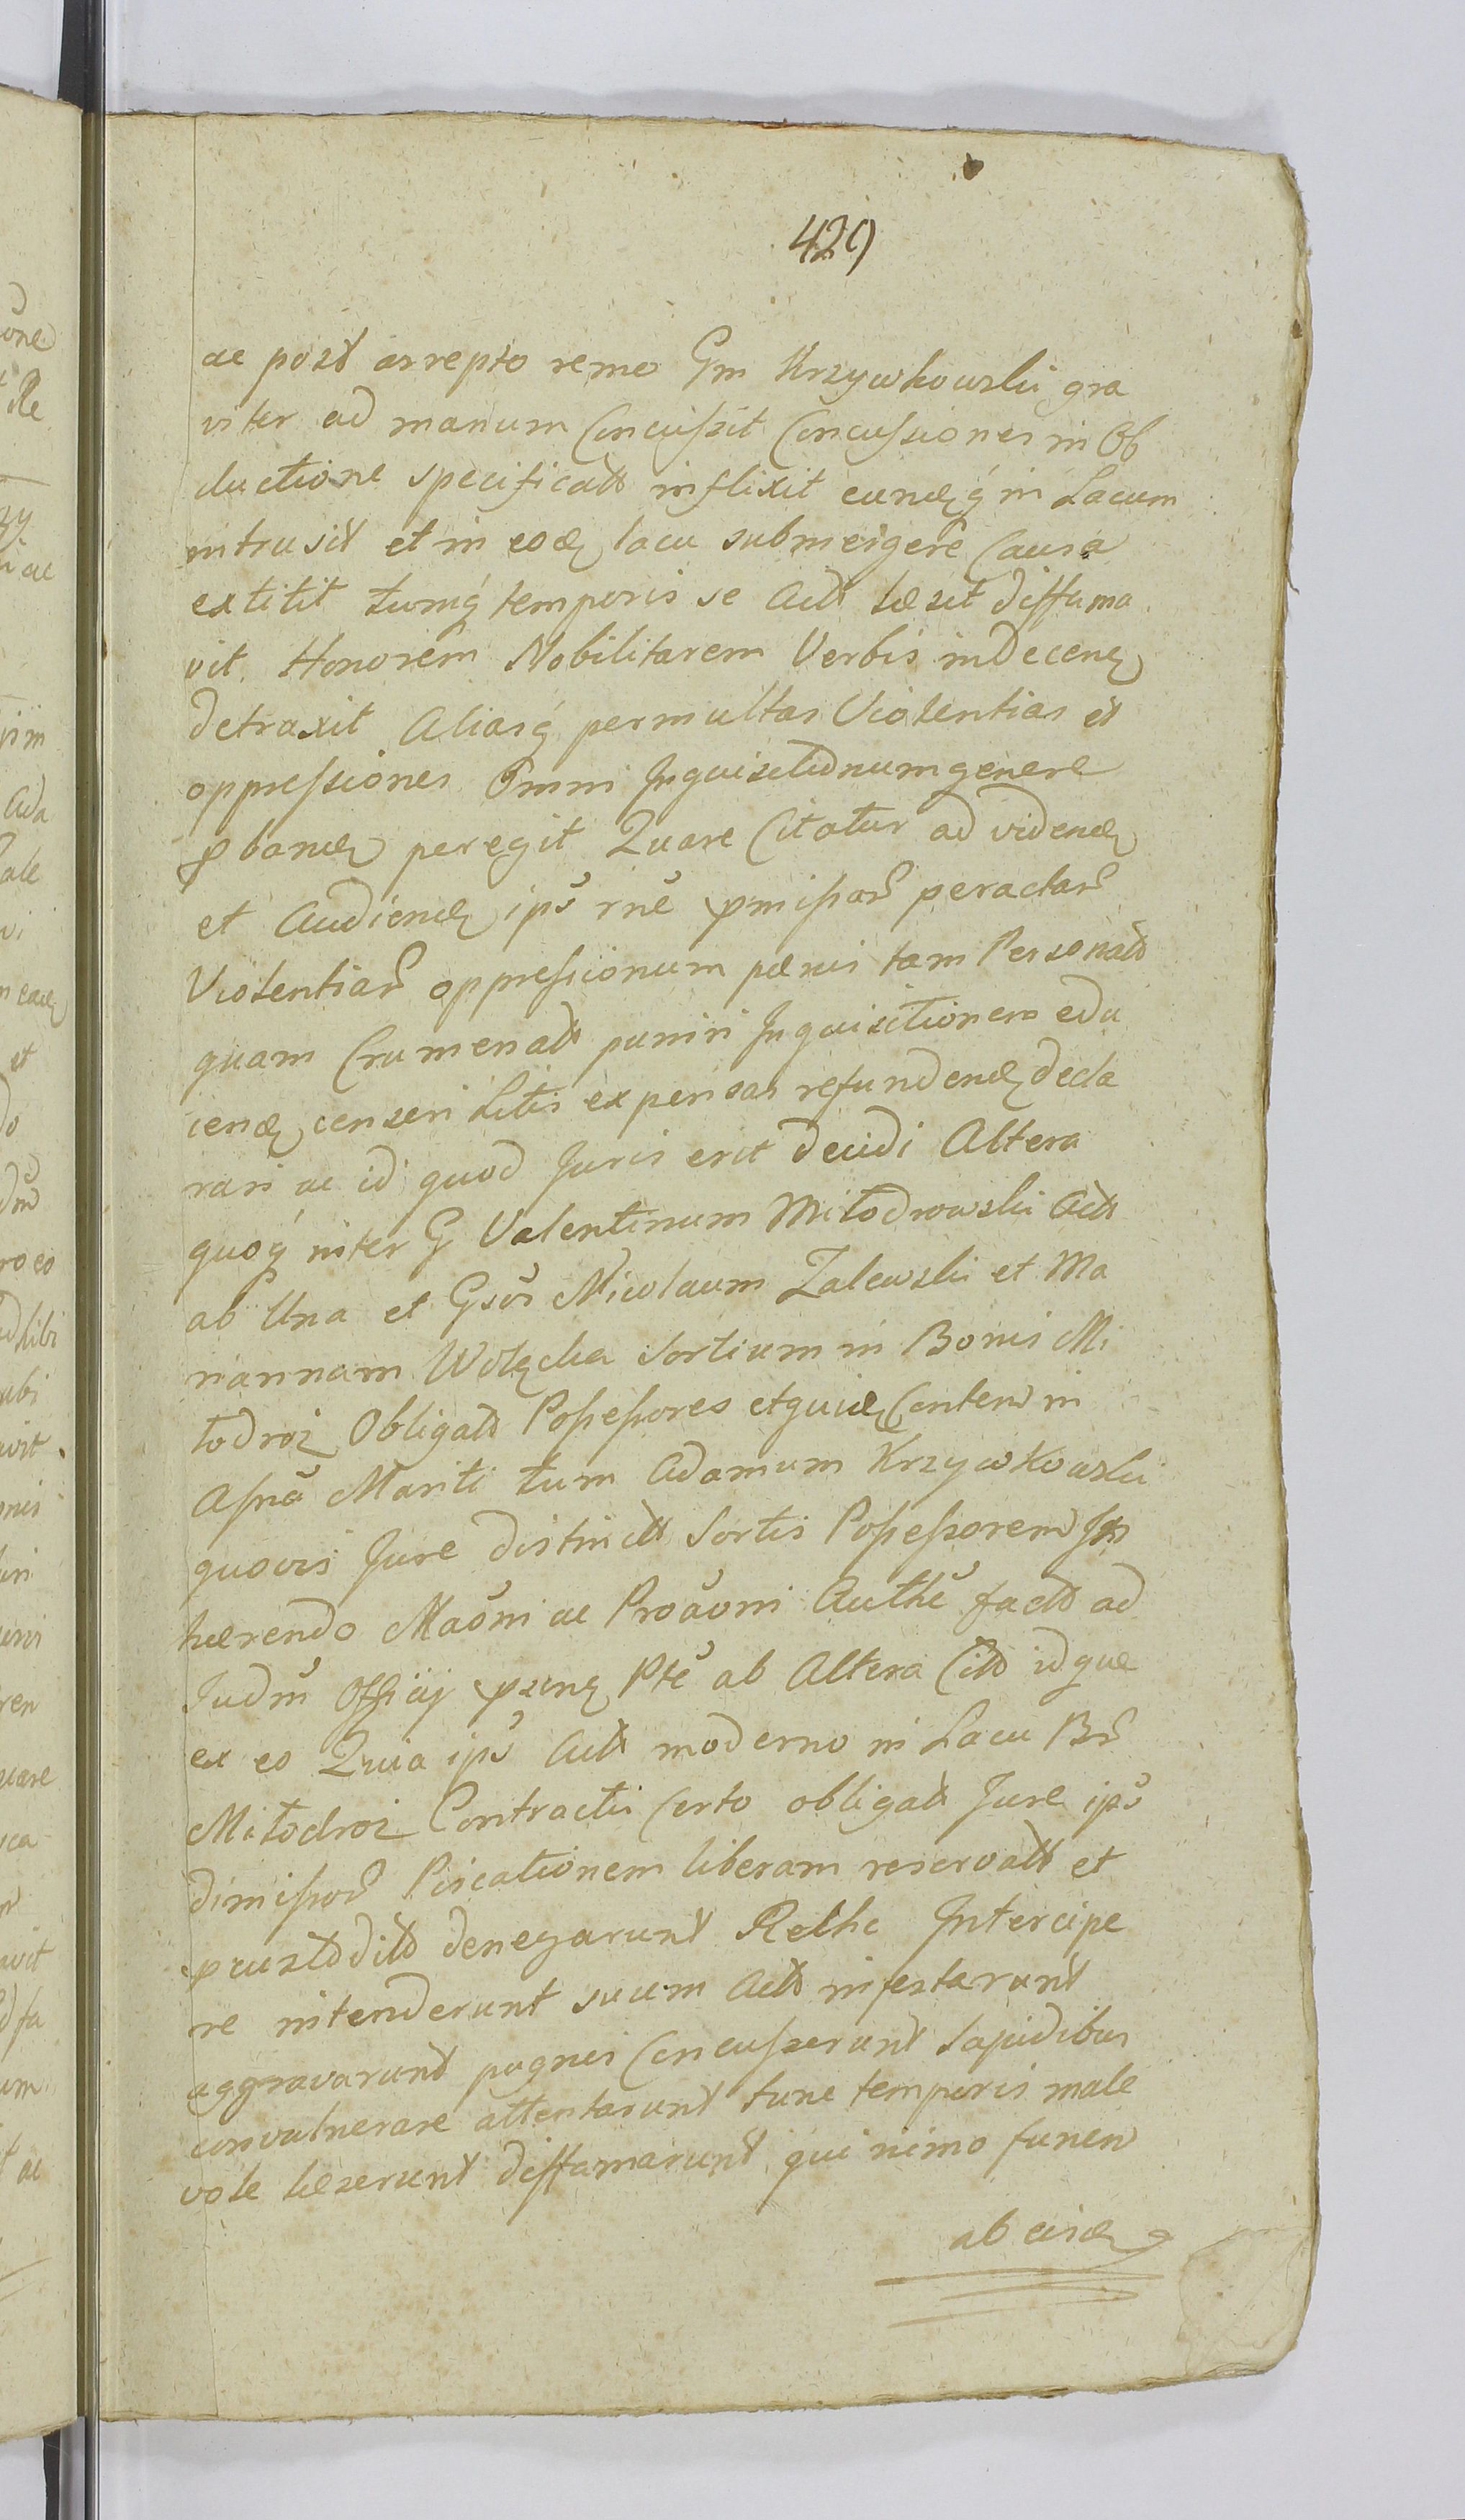 429
ac post arrepto remo Gm Krzywkowski gra
viter ad manum Concussit Concussiones in Ob
ductione specificats inflixit eundq in Lacum
intrusit et in eod lacu submergere Causa
extitit tumq temporis se Acts læsit diffama
vit Honorem Nobilitarem Verbis indecent
detraxit Aliasq permultas Violentias et
oppressiones Omni Inquisitionum genere
pband peregit Quare Citatur ad vidend
et Audiend ips rne pmissar peractar
Violentiar oppressionum pænis tam Personalt
quam Crumenalt puniri Inquisitionem edu
cend censeri Litis expensas refundend decla
rari ac id quod Juris erit decidi Altera
quoq inter G Valentinum Mitodrowski Acts
ab Una et Gsos Nicolaum Zalewski et Ma
riannam Wolęcka Sortium in Bonis Mi
łodroż Obligats Possessores et quid Conten in
Assña Mariti tum Adamum Krzywkowski
quovis Jure distinct Sortis Possessorem In
hærendo Maõni ac Proãoni Authe facts ad
Judm Officij psens Pte ab Altera Cits idque
ex eo Quia ips Acts moderno in Lacu Br
Miłodroż Contractu Certo obligats Jure ips
dimissor Piscationem liberam reservats et
pcustodits denegarunt Rethe Intercipe
re intenderunt suum Acts infestarunt
aggravarunt pugnis Concusserunt Lapidibus
convulnerare attentarunt tunc temporis male
vole læserunt diffamarunt quinimo funem
ab eisd